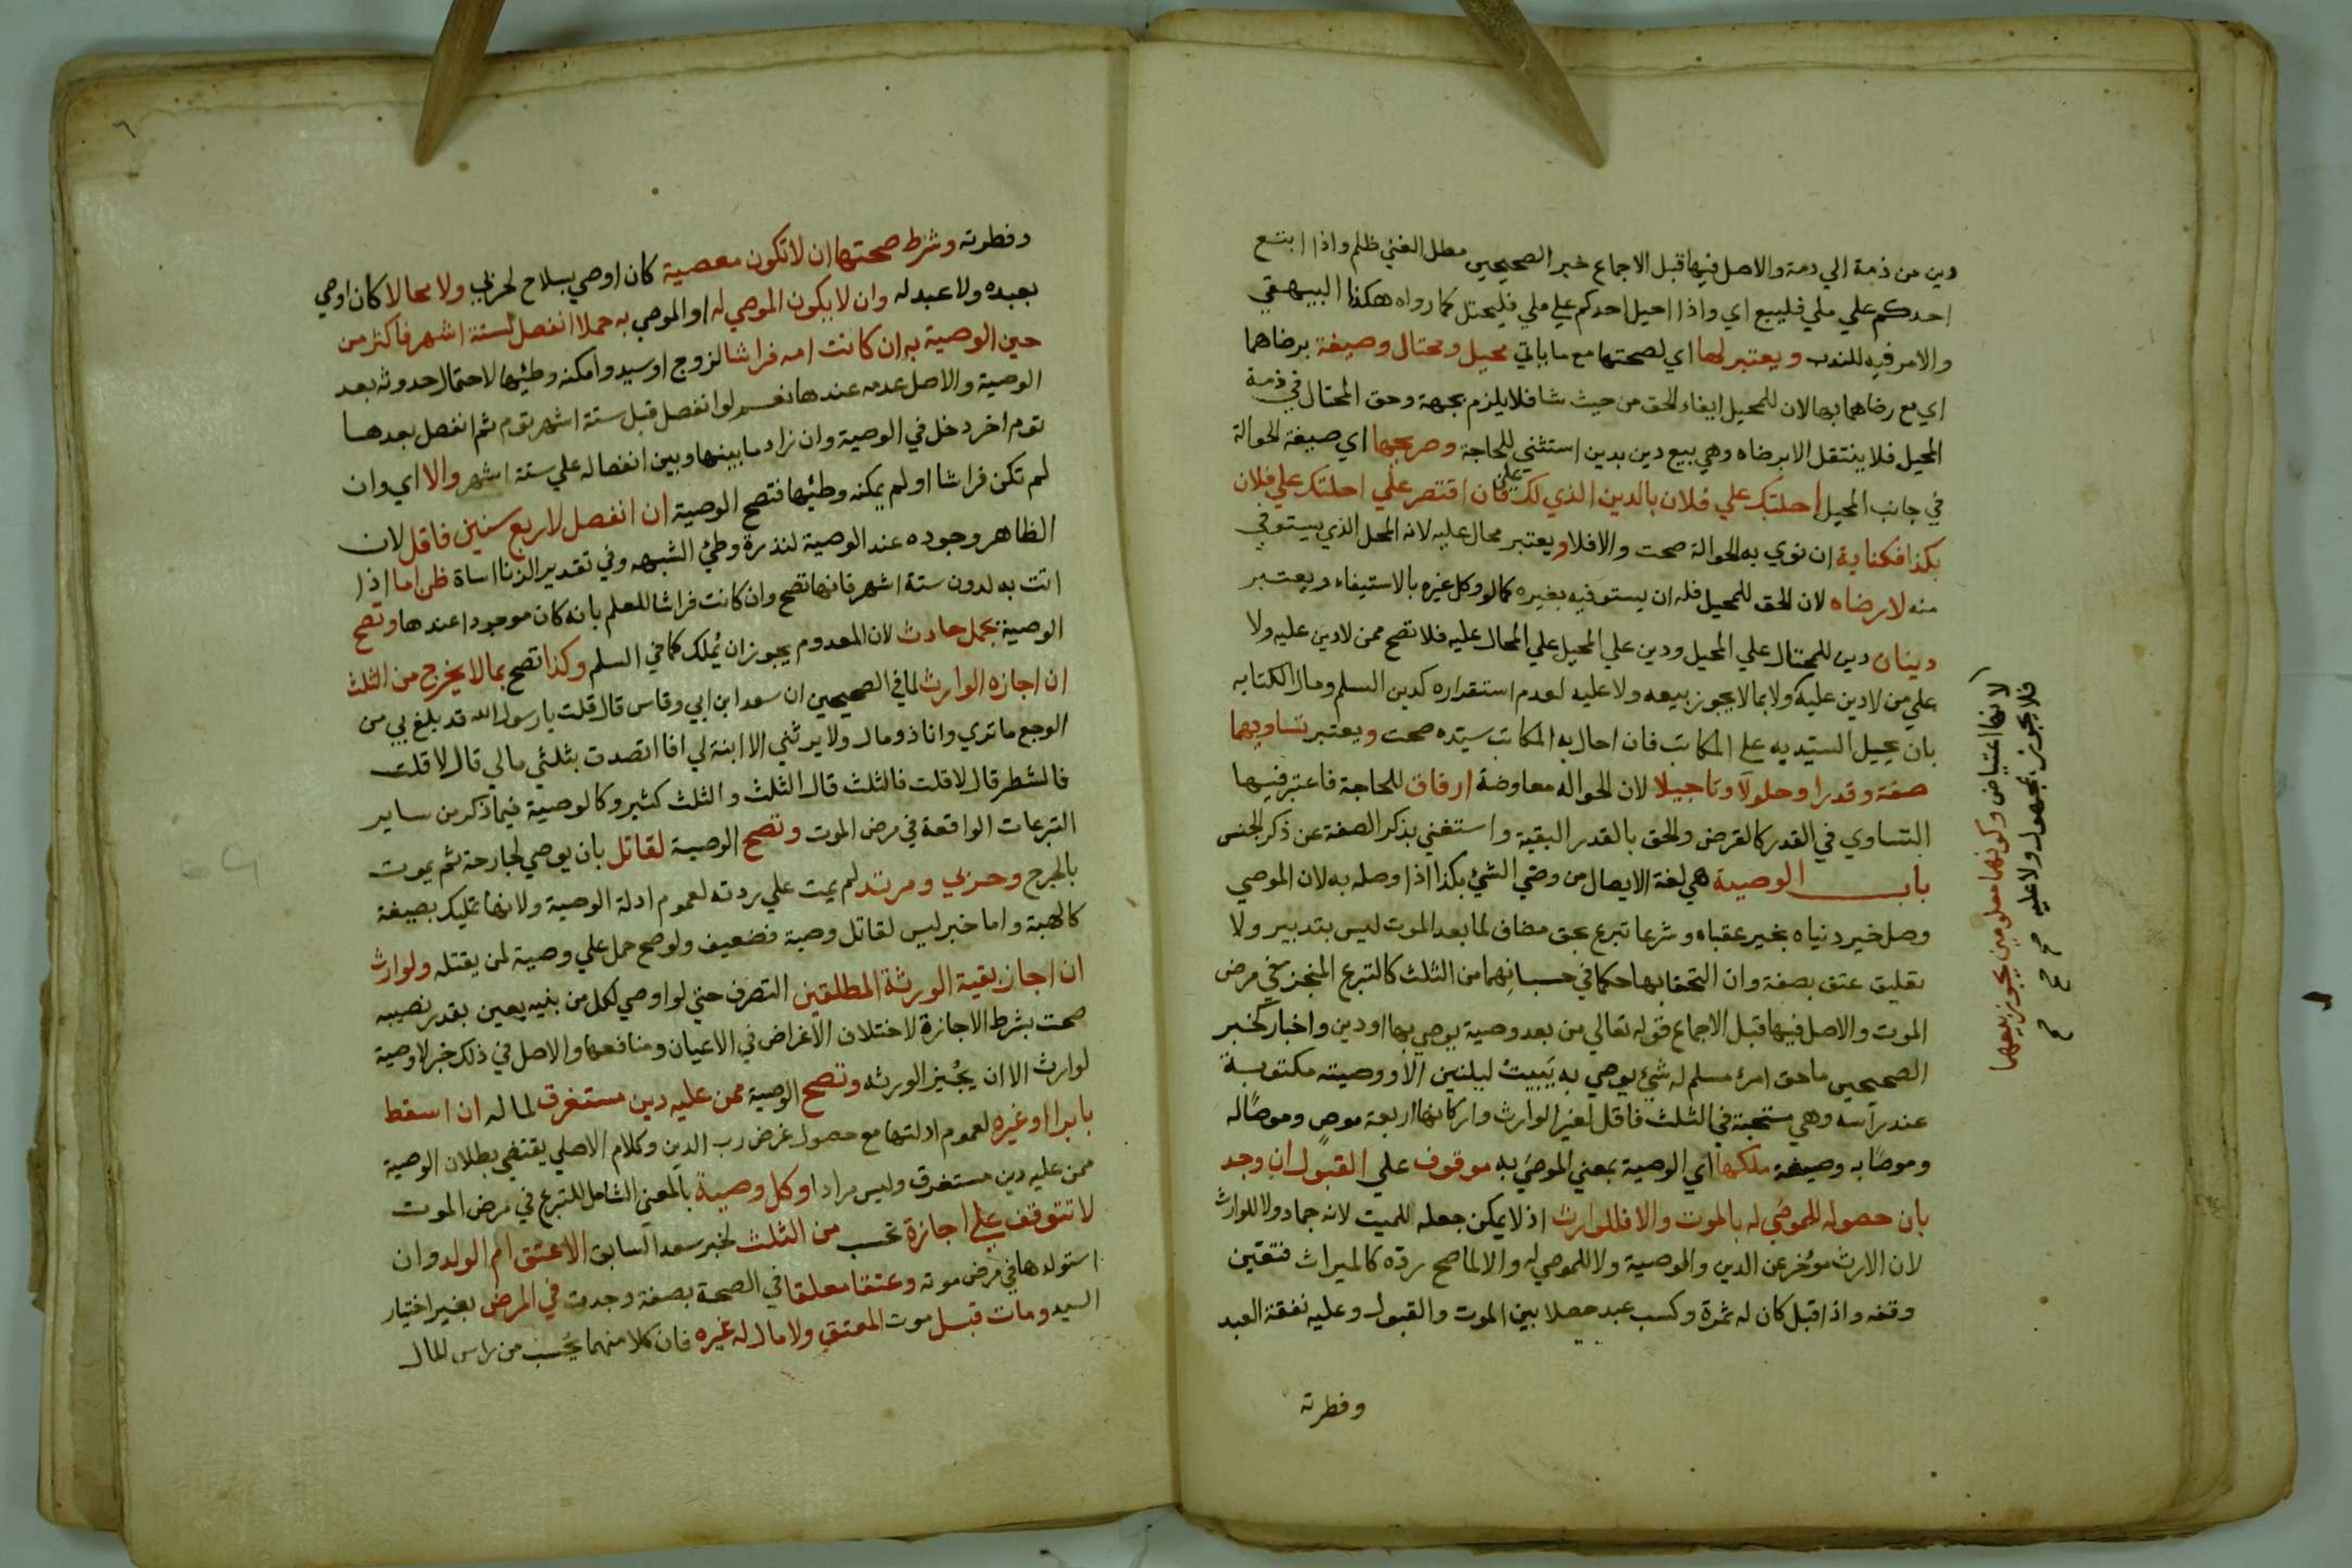 دين من ذمة الي دمة والاصل فيها قبل الاجماع خبر الصحيحين مطل الغني ظلم واذا اتبع
احدكم علي ملي فليتبع اي واذا احيل احدكم علي ملي فليحتل كما رواه هكذا البيهقي
والامر فيه للندب ويعتبر لها اي لصحتها مع ما ياتي محيل ومحتال وصيغة برضاهما
اي مع رضاهما بها لان للمحيل ايفاء الحق من حيث شا فلا يلزم بجهة وحق المحتال في ذمة
المحيل فلا ينتقل الا برضاه وهي بيع دين بدين استثني للحاجة وصريحها اي صيغة الحوالة
في جانب المحيل احلتك علي فلان بالدين الذي لك علي فان اقتصر علي احلتك علي فلان
بكذا فكناية ان نوي به الحوالة صحت والا فلا ويعتبر محال عليه لانه المحل الذي يستوفي
منه لا رضاه لان الحق للمحيل فله ان يستوفيه بغيره كما لو وكل غيره بالاستيفاء ويعتبر
دينان دين للمحتال علي المحيل ودين علي المحيل علي المحال عليه فلا تصح ممن لا دين عليه ولا
علي من لا دين عليه ولا بما لا يجوز بيعه ولا عليه لعدم استقراره كدين السلم ومال الكتابه
بان يحيل السيد به علي المكاتب فان احال به المكاتب سيده صحت ويعتبر تساويهما
صفة وقدرا وحلولا وتاجيلا لان الحواله معاوضة ارفاق للحاجة فاعتبر فيها
التساوي في القدر كالقرض والحق بالقدر البقية واستغني بذكر الصفة عن ذكر الجنس
باب الوصية هي لغة الايصال من وصي الشئ بكذا اذا وصله به لان الموصي
وصل خير دنياه بخير عقباه وشرعا تبرع بحق مضاف لما بعد الموت ليس بتدبير ولا
تعليق عتق بصفة وان التحقا بها حكما في حسبانهما من الثلث كالتبرع المنجز في مرض
الموت والاصل فيها قبل الاجماع قوله تعالي من بعد وصية يوصي بها او دين واخبار كخبر
الصحيحين ما حق امرئ مسلم له شئ يوصي به يبيت ليلتين الا ووصيته مكتوبة
عند رأسه وهي مستحبة في الثلث فاقل لغير الوارث واركانها اربعة موص وموصا له
وموصا به وصيغة ملكها اي الوصية بمعني الموصي به موقوف علي القبول ان وجد
بان حصوله للموصي له بالموت والا فللوارث اذ لا يمكن جعله للميت لانه جماد ولا للوارث
لان الارث مؤخر عن الدين والوصية ولا للموصي له والا لما صح رده كالميراث فتعين
وقفه واذا قبل كان له ثمرة وكسب عبد حصلا بين الموت والقبول وعليه نفقة العبد
وفطرته
لانها اعتياض وكونهما معلومين يجوز بيعهما
فلا يجوز بمجهول ولا عليه
وفطرته وشرط صحتها ان لا تكون معصية كان اوصي بسلاح لحربي ولا محالا كان اوصي
بعبده ولا عبد له وان لا يكون الموصي له او الموصي به حملا انفصل لستة اشهر فاكثر من
حين الوصية به ان كانت امه فراشا لزوج او سيد وامكنه وطئها لاحتمال حدوثه بعد
الوصية والاصل عدمه عندها نعم لو انفصل قبل ستة اشهر توم ثم انفصل بعدها
توم اخر دخل في الوصية وان زاد ما بينهما وبين انفصاله علي ستة اشهر والا اي وان
لم تكن فراشا او لم يمكنه وطئها فتصح الوصية ان انفصل لاربع سنين فاقل لان
الظاهر وجوده عند الوصية لندرة وطئ الشبهه وفي تقدير الزنا اساة ظن اما اذا
اتت به لدون ستة اشهر فانها تصح وان كانت فراشا للعلم بانه كان موجودا عندها وتصح
الوصية بحمل حادث لان المعدوم يجوز ان يملك كما في السلم وكذا تصح بما لا يخرج من الثلث
ان اجازه الوارث لما في الصحيحين ان سعد ابن ابي وقاس قال قلت يا رسول الله قد بلغ بي من
الوجع ما تري وانا ذو مال ولا يرثني الا ابنة لي افا اتصدت بثلثي مالي قال لا قلت
فالشطر قال لا قلت فالثلث قال الثلث والثلث كثير وكالوصية فيما ذكر من ساير
التبرعات الواقعة في مرض الموت وتصح الوصية لقاتل بان يوصي لجارحة ثم يموت
بالجرح وحربي ومرتد لم يمت علي ردته لعموم ادلة الوصية ولانها تمليك بصيغة
كالهبة واما خبر ليس لقاتل وصية فضعيف ولو صح حمل علي وصية لمن يقتله ولوارث
ان اجاز بقية الورثة المطلقين التصرف حتي لو اوصي لكل من بنيه بعين بقدر نصيبه
صحت بشرط الاجازة لاختلاف الاغراض في الاعيان ومنافعها والاصل في ذلك خبر لا وصية
لوارث الا ان يجيز الورثه وتصح الوصية ممن عليه دين مستغرق لماله ان اسقط
بابرا او غيره لعموم ادلتها مع حصول غرض رب الدين وكلام الاصلي يقتضي بطلان الوصية
ممن عليه دين مستغرق وليس مرادا وكل وصية بالمعني الشامل للتبرع في مرض الموت
لا تتوقف علي اجازة تحسب من الثلث لخبر سعد السابق الا عتق ام الولد وان
استولدها في مرض موته وعتقا معلقا في الصحة بصفة وجدت في المرض بغير اختيار
السيد ومات قبل موت المعتق ولا مال له غيره فان كلا منهما يحسب من راس المال